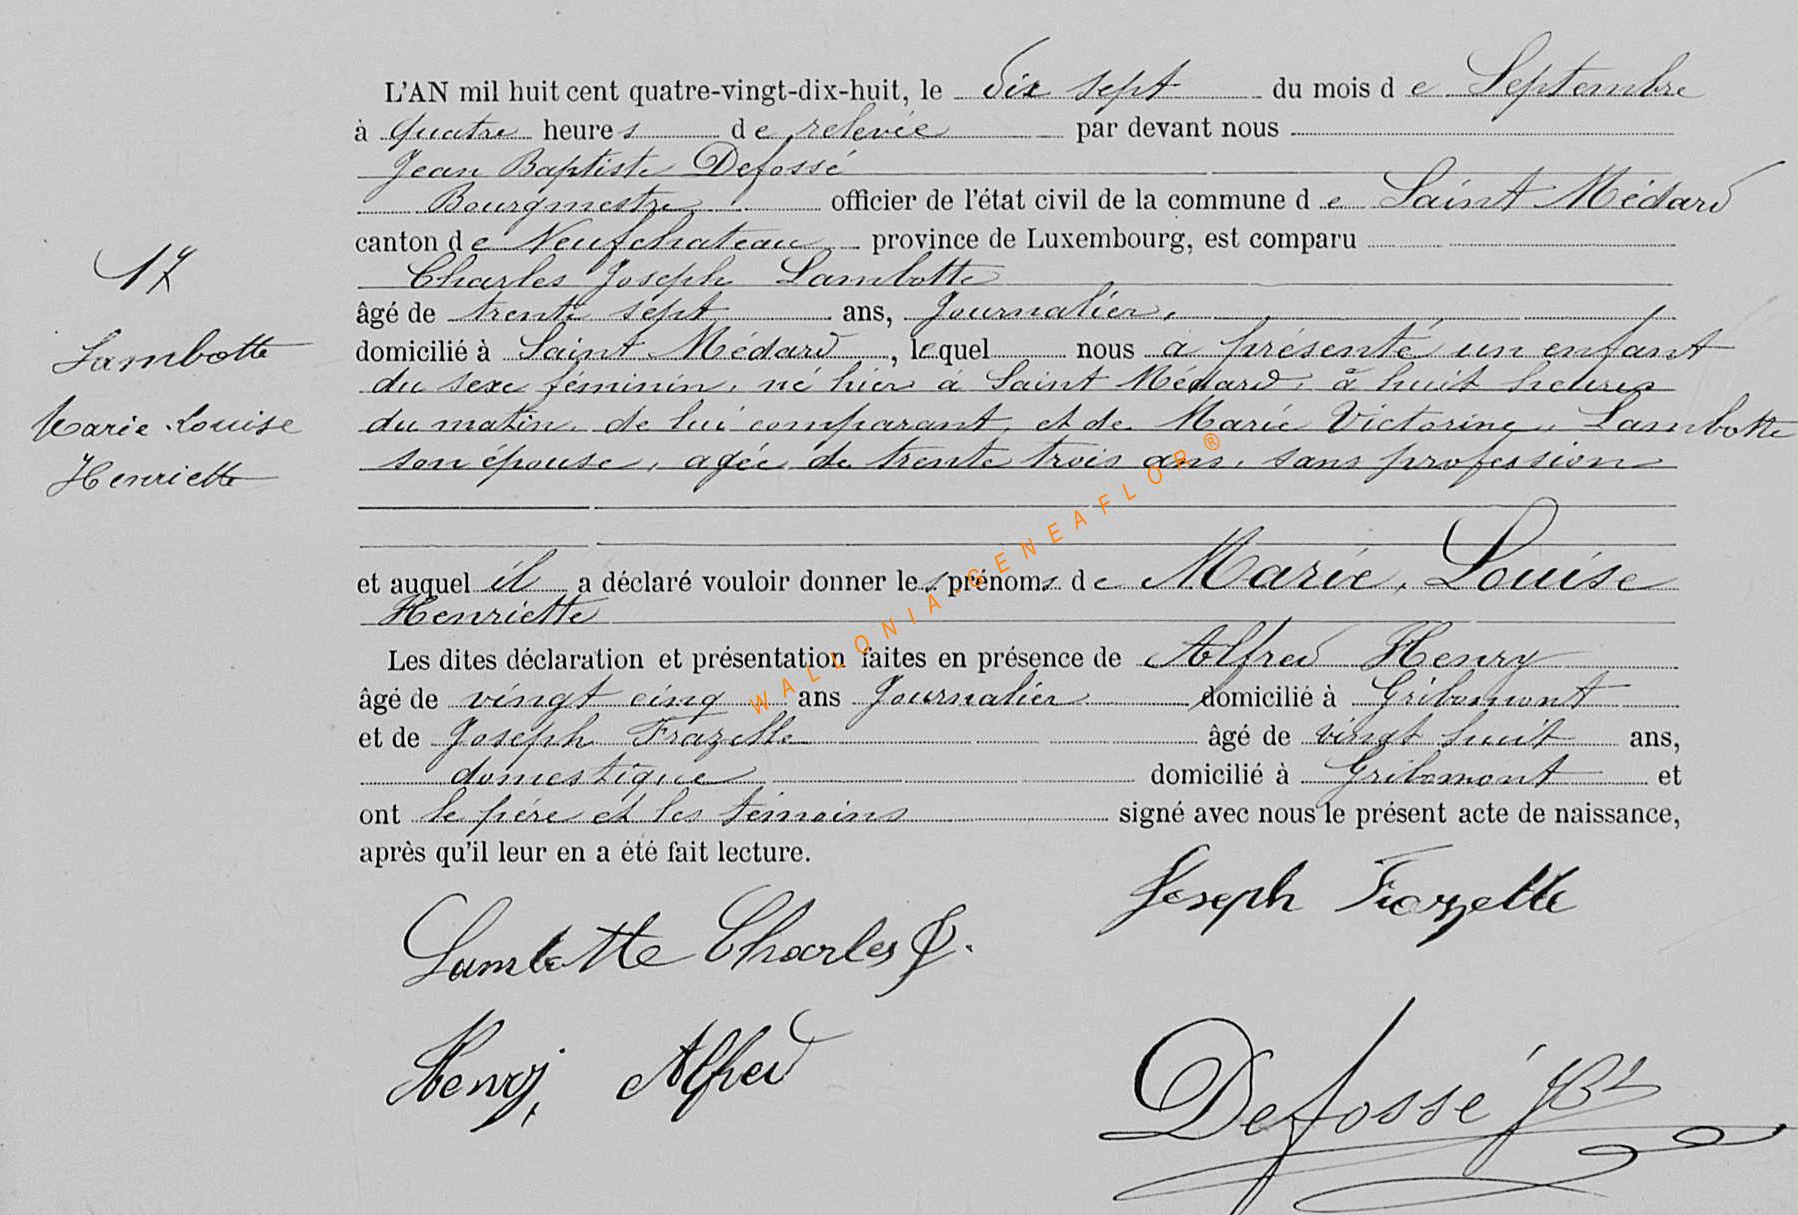 L'AN mil huit cent quatre-vingt-dix-huit, le dix sept du mois de Septembre
à quatre heures de relevée par devant nous
Jean Baptiste Defossé
Bourgmestre officier de l'état civil de la commune de Saint Médard
canton de Neufchateau province de Luxembourg, est comparu
Charles Joseph Lambotte
âgé de trente sept ans, Journalier,
domicilié à Saint Médard, lequel nous a présenté un enfant
du sexe féminin, né hier à Saint Médard, à huit heures
du matin, de lui comparant, et de Marie Victorine Lambotte
son épouse, agée de trente trois ans, sans profession
et auquel il a déclaré vouloir donner les prénoms de Marie, Louise
Henriette
Les dites déclaration et présentation faites en présence de Alfred Henry
âgé de vingt cinq ans Journalier domicilié à Gribomont
et de Joseph Frazelle âgé de vingt huit ans,
domestique domicilié à Gribomont et
ont le père et les témoins signé avec nous le présent acte de naissance,
après qu'il leur en a été fait lecture.
17
Lambotte
Marie-Louise
Henriette
Joseph Frazelle
Lambotte Charles J.
Henry, Alfred
Defossé JBt
WALLONIA-GENEAFLOR®